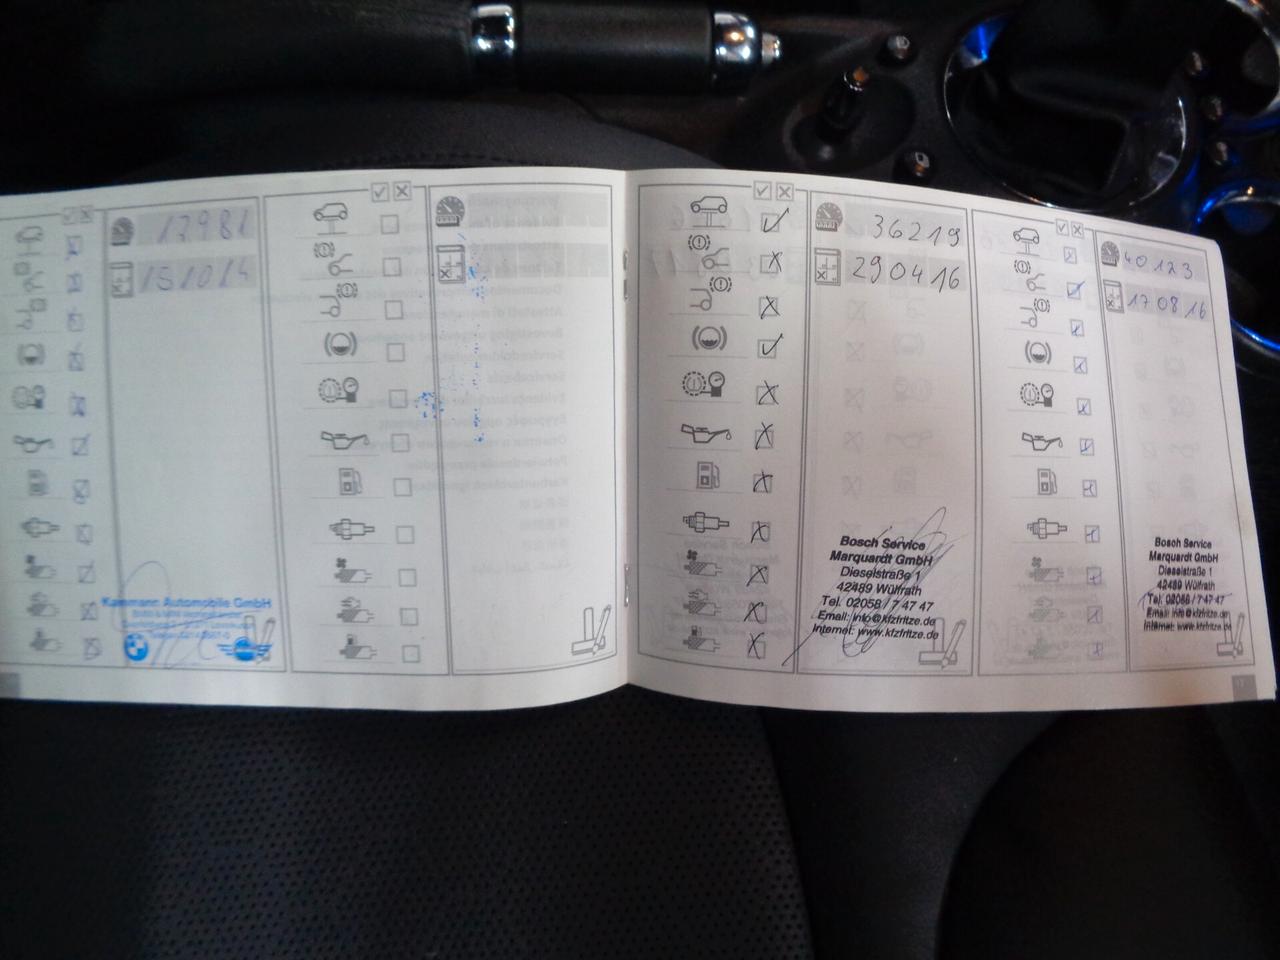 17981
151014
Kammann Automobile GmbH
36219
290416
Bosch Service
Marquardt GmbH
Dieselstraße 1
42489 Wülfrath
Tel. 02058 / 7 47 47
Email: info@kfzfritze.de
Internet: www.kfzfritze.de
40123
170816
Bosch Service
Marquardt GmbH
Dieselstraße 1
42489 Wülfrath
Tel. 02058 / 7 47 47
Email: info@kfzfritze.de
Internet: www.kfzfritze.de